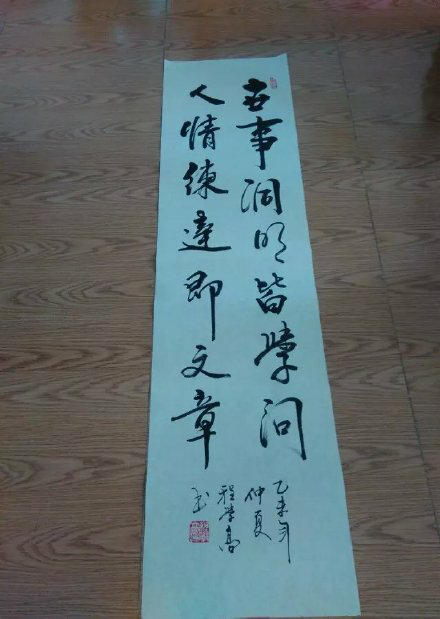 世事洞明皆學问
人情練達即文章
乙未年
仲夏
程学高
书